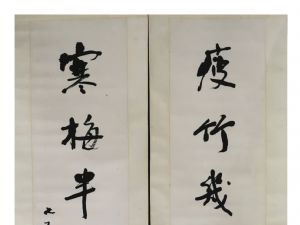 瘦竹幾
寒梅半